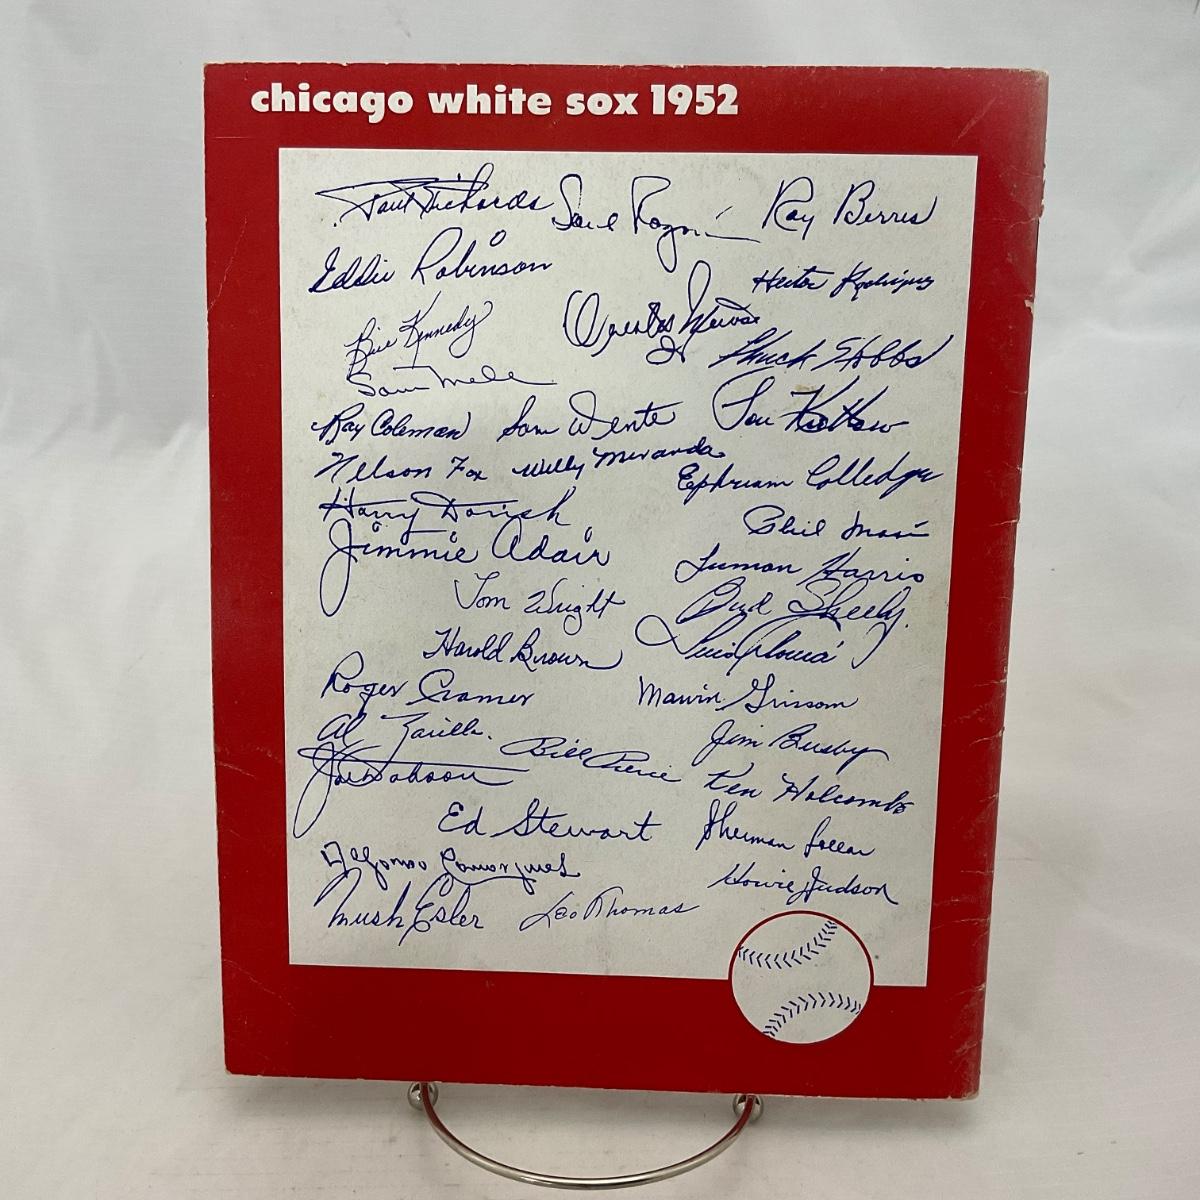 chicago white sox 1952
Paul Richards Saul Rogovin Ray Berres
Eddie Robinson Hector Rodriguez
Bill Kennedy Orestes Minoso
Jr Chuck Stobbs
Sam Mele
Ray Coleman Sam Dente Lou Kretlow
Nelson Fox Willy Miranda Ephriam Colledge
Harry Dorish Phil Masi
Jimmie Adair Luman Harris
Tom Wright Bud Sheely.
Harold Brown Luis Aloma
Roger Cramer Marvin Grissom
Al Zarilla. Jim Busby
Joe Dobson Bill Pierce Ken Holcombe
Ed Stewart Sherman Lollar
Alfonso Carrasquel Howie Judson
Mush Esler Leo Thomas